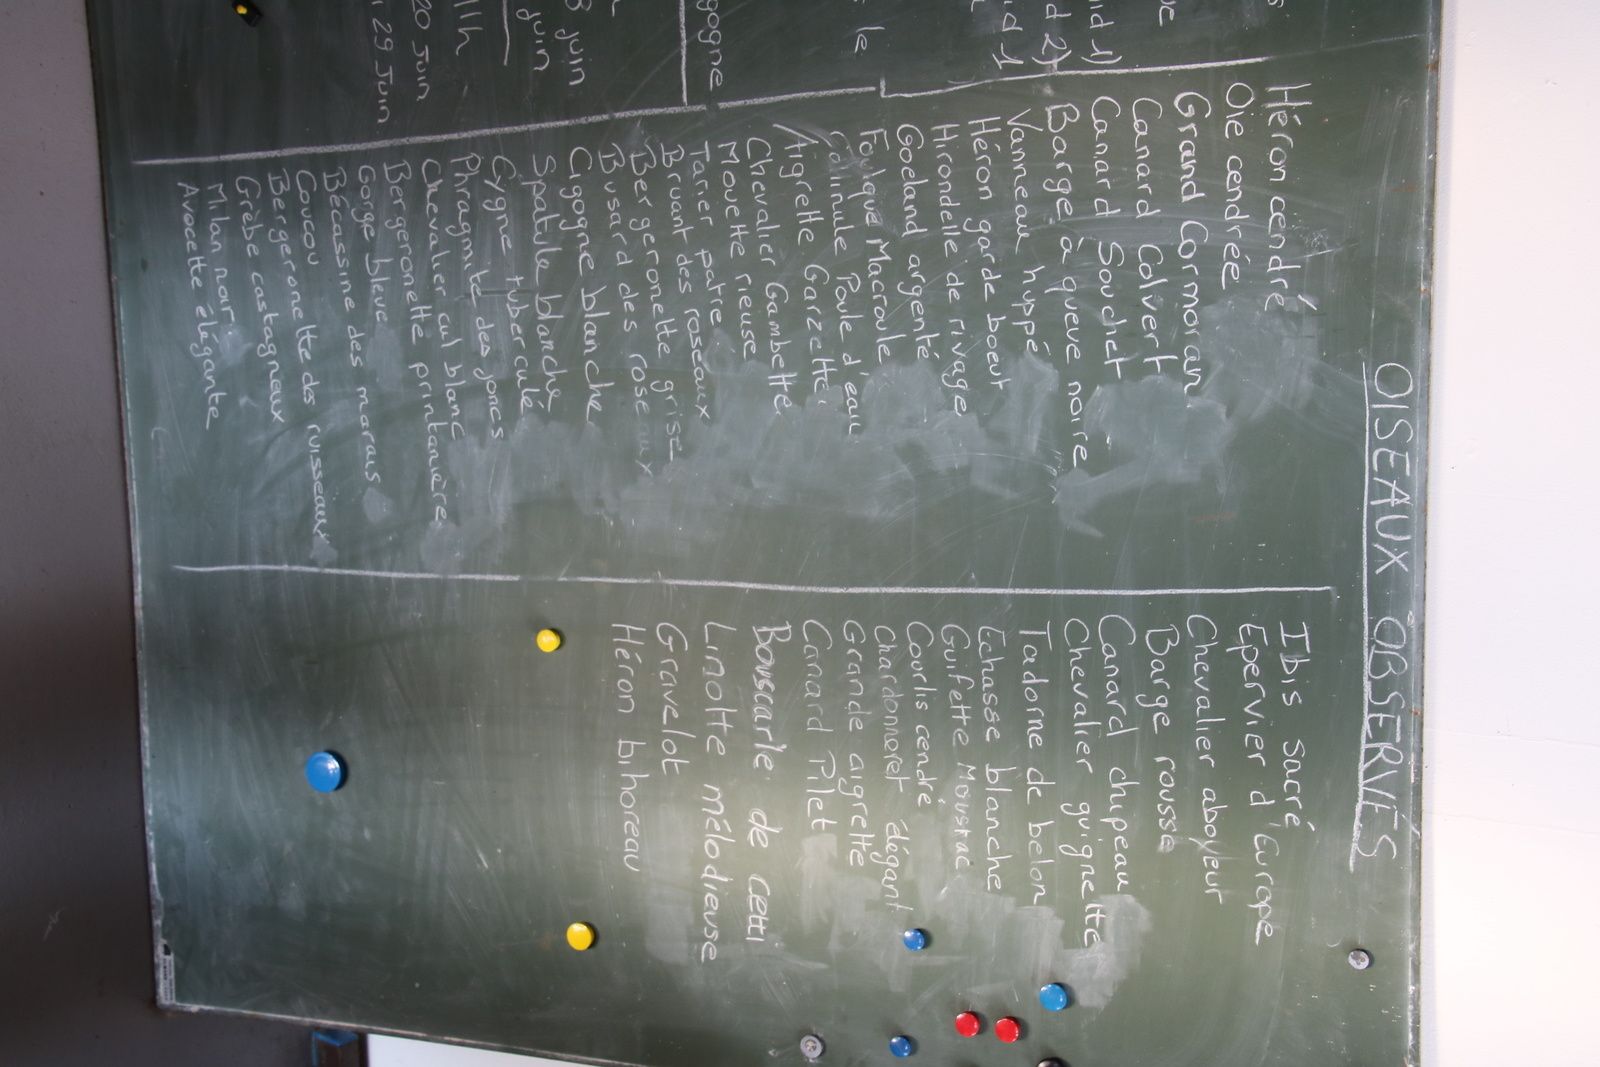 OISEAUX OBSERVÉS
Héron cendré
Oie cendrée
Grand Cormoran
Canard Colvert
Canard Souchet
Barge à queue noire
Vanneau huppé
Héron garde boeuf
Hirondelle de rivage
Goeland argenté
Foulque Macroule
Gallinule Poule d'eau
Aigrette Garzette
Chevalier Gambette
Mouette rieuse
Tarier patre
Bruant des roseaux
Bergeronette grise
Busard des roseaux
Cigogne blanche
Spatule blanche
Cygne tuberculé
Phragmite des joncs
Chevalier cul blanc
Bergeronette printanière
Gorge bleue
Bécassine des marais
Coucou
Bergeronette des ruisseaux
Grèbe castagneux
Milan noir
Avocette élégante
Ibis sacré
Epervier d'Europe
Chevalier aboyeur
Barge rousse
Canard chipeau
Chevalier guignette
Tadorne de belon
Echasse blanche
Guifette Moustac
Courlis cendré
Chardonneret élégant
Grande aigrette
Canard Pilet
Bouscarle de cetti
Linotte mélodieuse
Gravelot
Héron bihoreau
le
juin
juin
11h
20 Juin
29 Juin